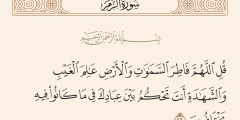 سورة الزمر
بسم الله الرحمن الرحيم
قُلِ ٱللَّهُمَّ فَاطِرَ ٱلسَّمَٰوَٰتِ وَٱلۡأَرۡضِ عَٰلِمَ ٱلۡغَيۡبِ
وَٱلشَّهَٰدَةِ أَنتَ تَحۡكُمُ بَيۡنَ عِبَادِكَ فِي مَا كَانُواْ فِيهِ